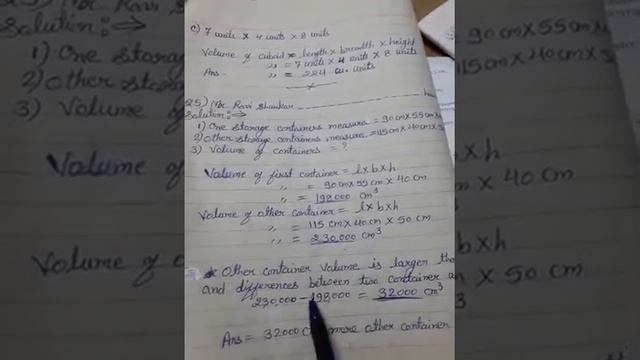 c) 7 units x 4 units x 8 units
Volume of cuboid = length x breadth x height
,, = 7 units x 4 units x 8 units
Ans. ,, = 224 cu. units
25) Mr. Ravi Shankar
Solution:⇒
1) One storage containers measure = 90 cm x 55 cm x
2) Other storage containers measure = 115 cm x 40 cm x
3) Volume of containers = ?
Volume of first container = l x b x h
,, = 90 cm x 55 cm x 40 cm
,, = 198,000 cm³
Volume of other container = l x b x h
,, = 115 cm x 40 cm x 50 cm
,, = 230,000 cm³
* Other container volume is larger
and differences between two container
230,000 - 198,000 = 32000 cm³
Ans = 32000 more other container
Solution:⇒
1) One Stora
2) Other stor
3) Volume
Volume
Volume
90 cm x 55 cm
115 cm x 40 cm x
b x h
cm x 40 cm
b x h
m x 50 cm